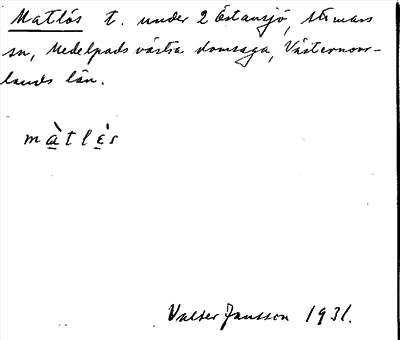 Matlös t. under 2 Östansjö, Stömans
sn, Medelpads västra domsaga, Västernorr-
lands län.
màtlès
Valter Jansson 1931.